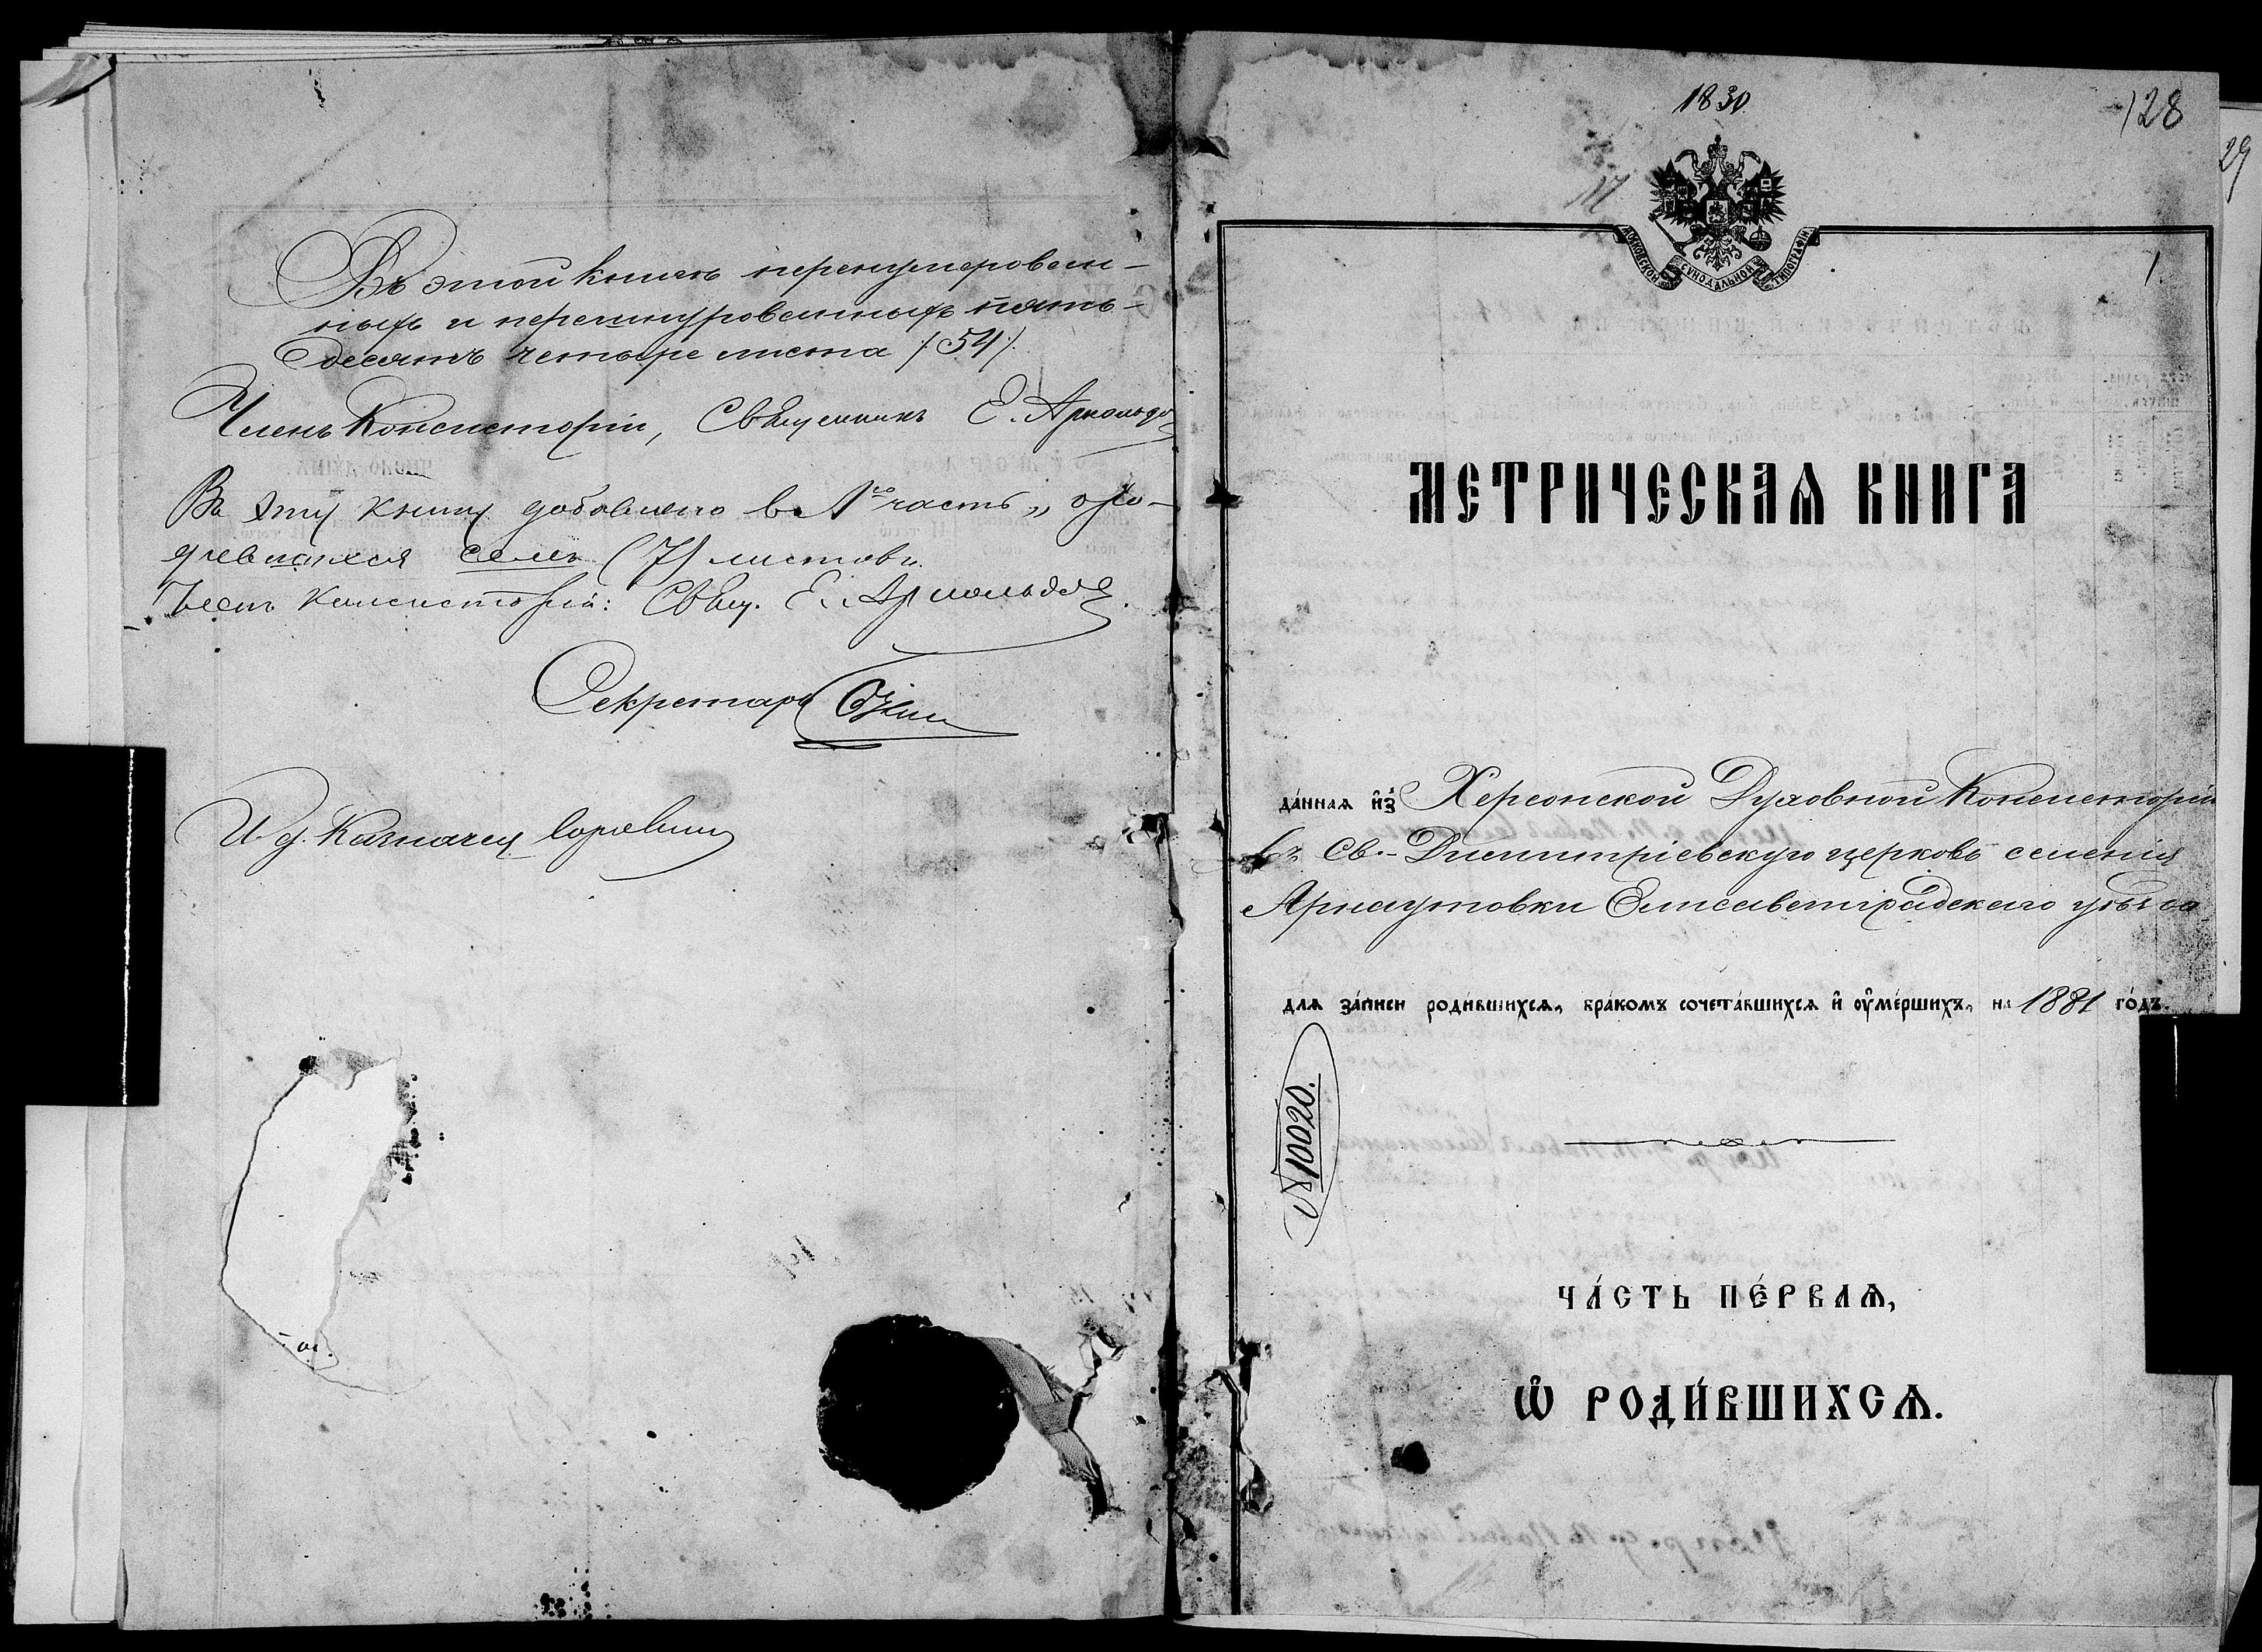 Въ этой книгѣ перенумерован-
ныхъ и перешнурованныхъ пять-
десятъ четыре листа /:54:/.
Членъ Консисторіи, Священникъ Е. Арнольдо
Въ эту книгу добавлено въ 1ю часть „о ро-
дившихся семь (7) листовъ.
Членъ Консисторіи: Свящ. Е. Арнольдо
Секретарь
И. д. Казначея
1830.
128
29
МОСКОВСКОЙ СѴНОДАЛЬНОЙ ТИПОГРАФІИ
1.
МЕТРИЧЕСКАѦ КНИГА
да́ннаѧ и҆зъ Херсонской Духовной Консисторіи
въ Св.-Димитріевскую церковь селенія
Арнаутовки Елисаветградскаго уѣзда
длѧ за́писи роди́вшихсѧ, бра́комъ сочета́вшихсѧ и҆ ᲂу҆ме́ршихъ, на 1881 го́дъ.
ЧА́СТЬ ПЕ́РВАѦ,
Ѡ҆ РОДИ́ВШИХСѦ.